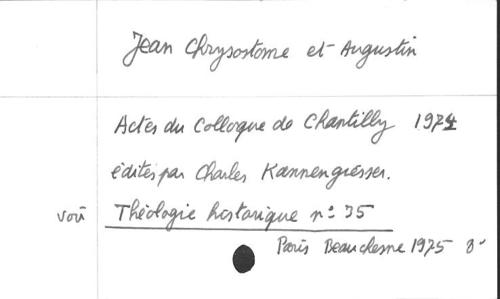 Jean Chrysostome et Augustin
Actes du Colloque de Chantilly 1974
édités par Charles Kannengiesser.
voir Théologie historique n° 35
Paris Beauchesne 1975 8°